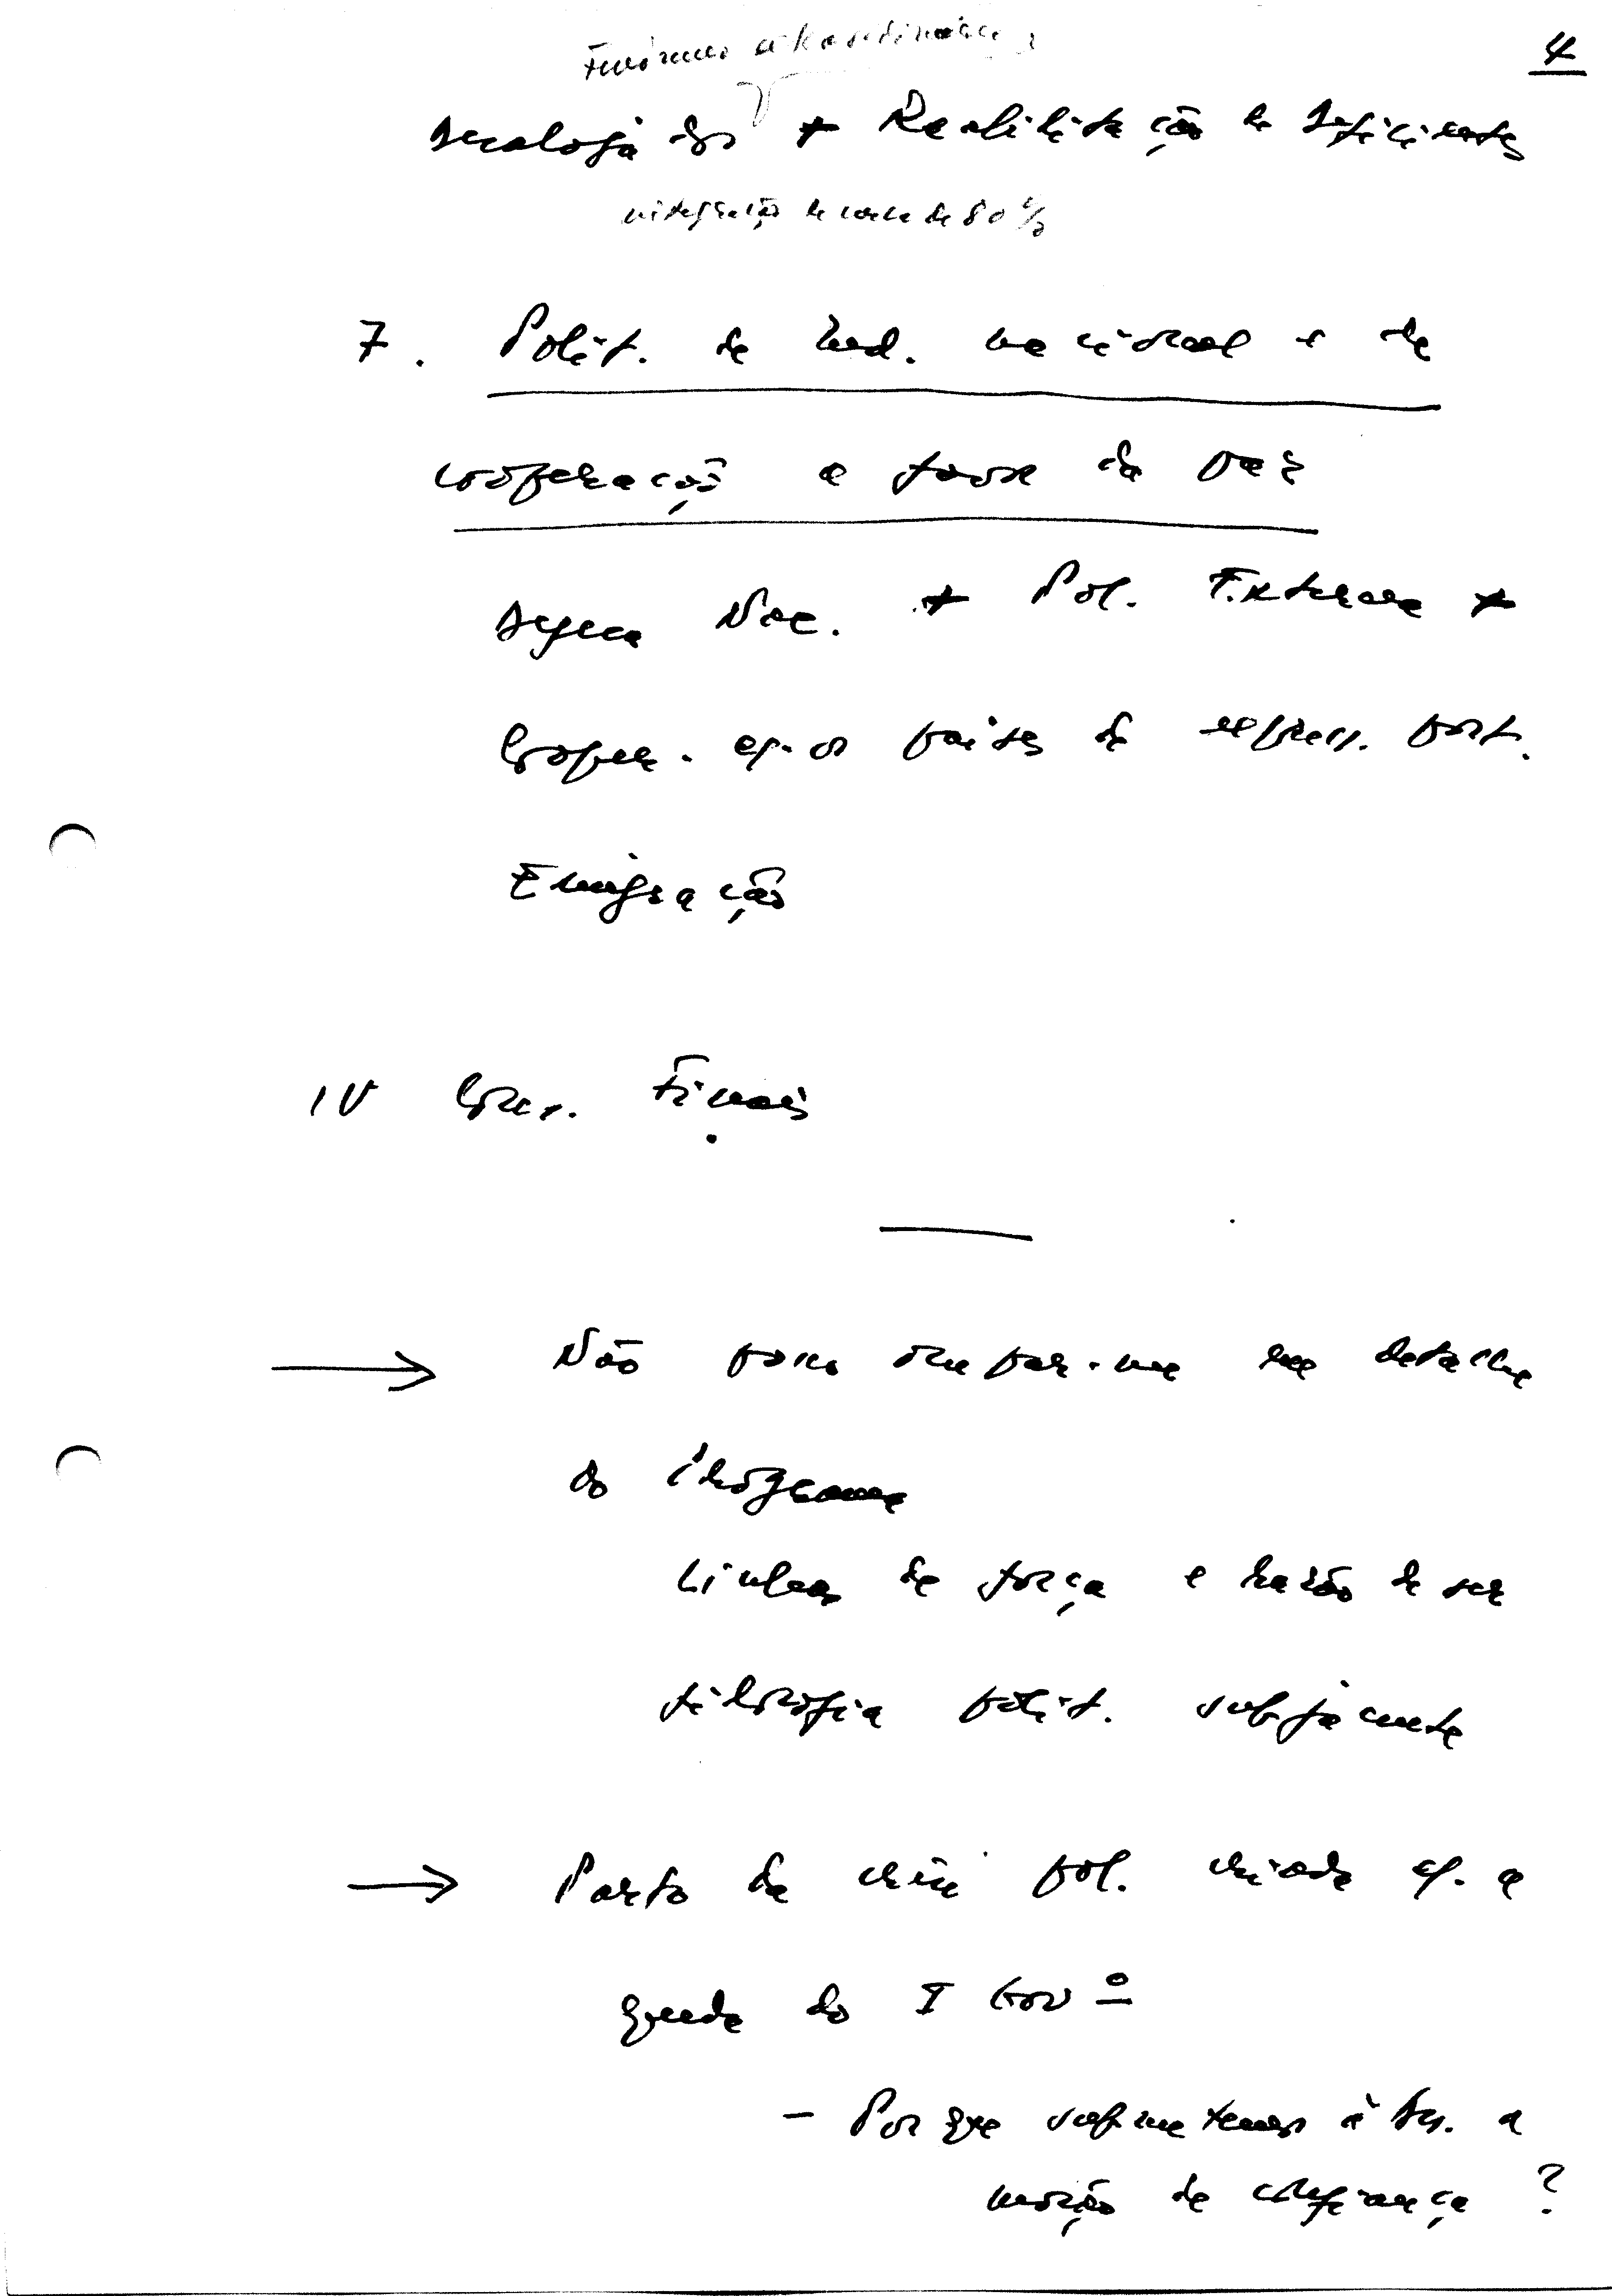 4
Fenómeno extraordinário
Desalojados + Reabilitação de Deficientes
integração de cerca de 80%
7. Polít. de Ind. nacional e de
cooperação a favor da paz
Defesa Nac. + Pol. Externa +
Cooper. c/. os países de express. port.
Emigração
IV Cons. Finais
Não posso ocupar-me no detalhe
do Programa
Linhas de força e razão de ser
filosofia polít. subjacente
Parto da crise pol. criada c/. a
queda do I Govº
- Porque submetemos à Ass. a
moção de confiança ?